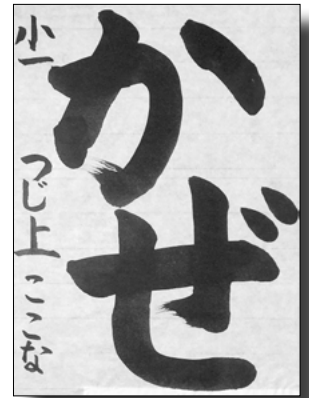 かぜ
小一
つじ上ここな